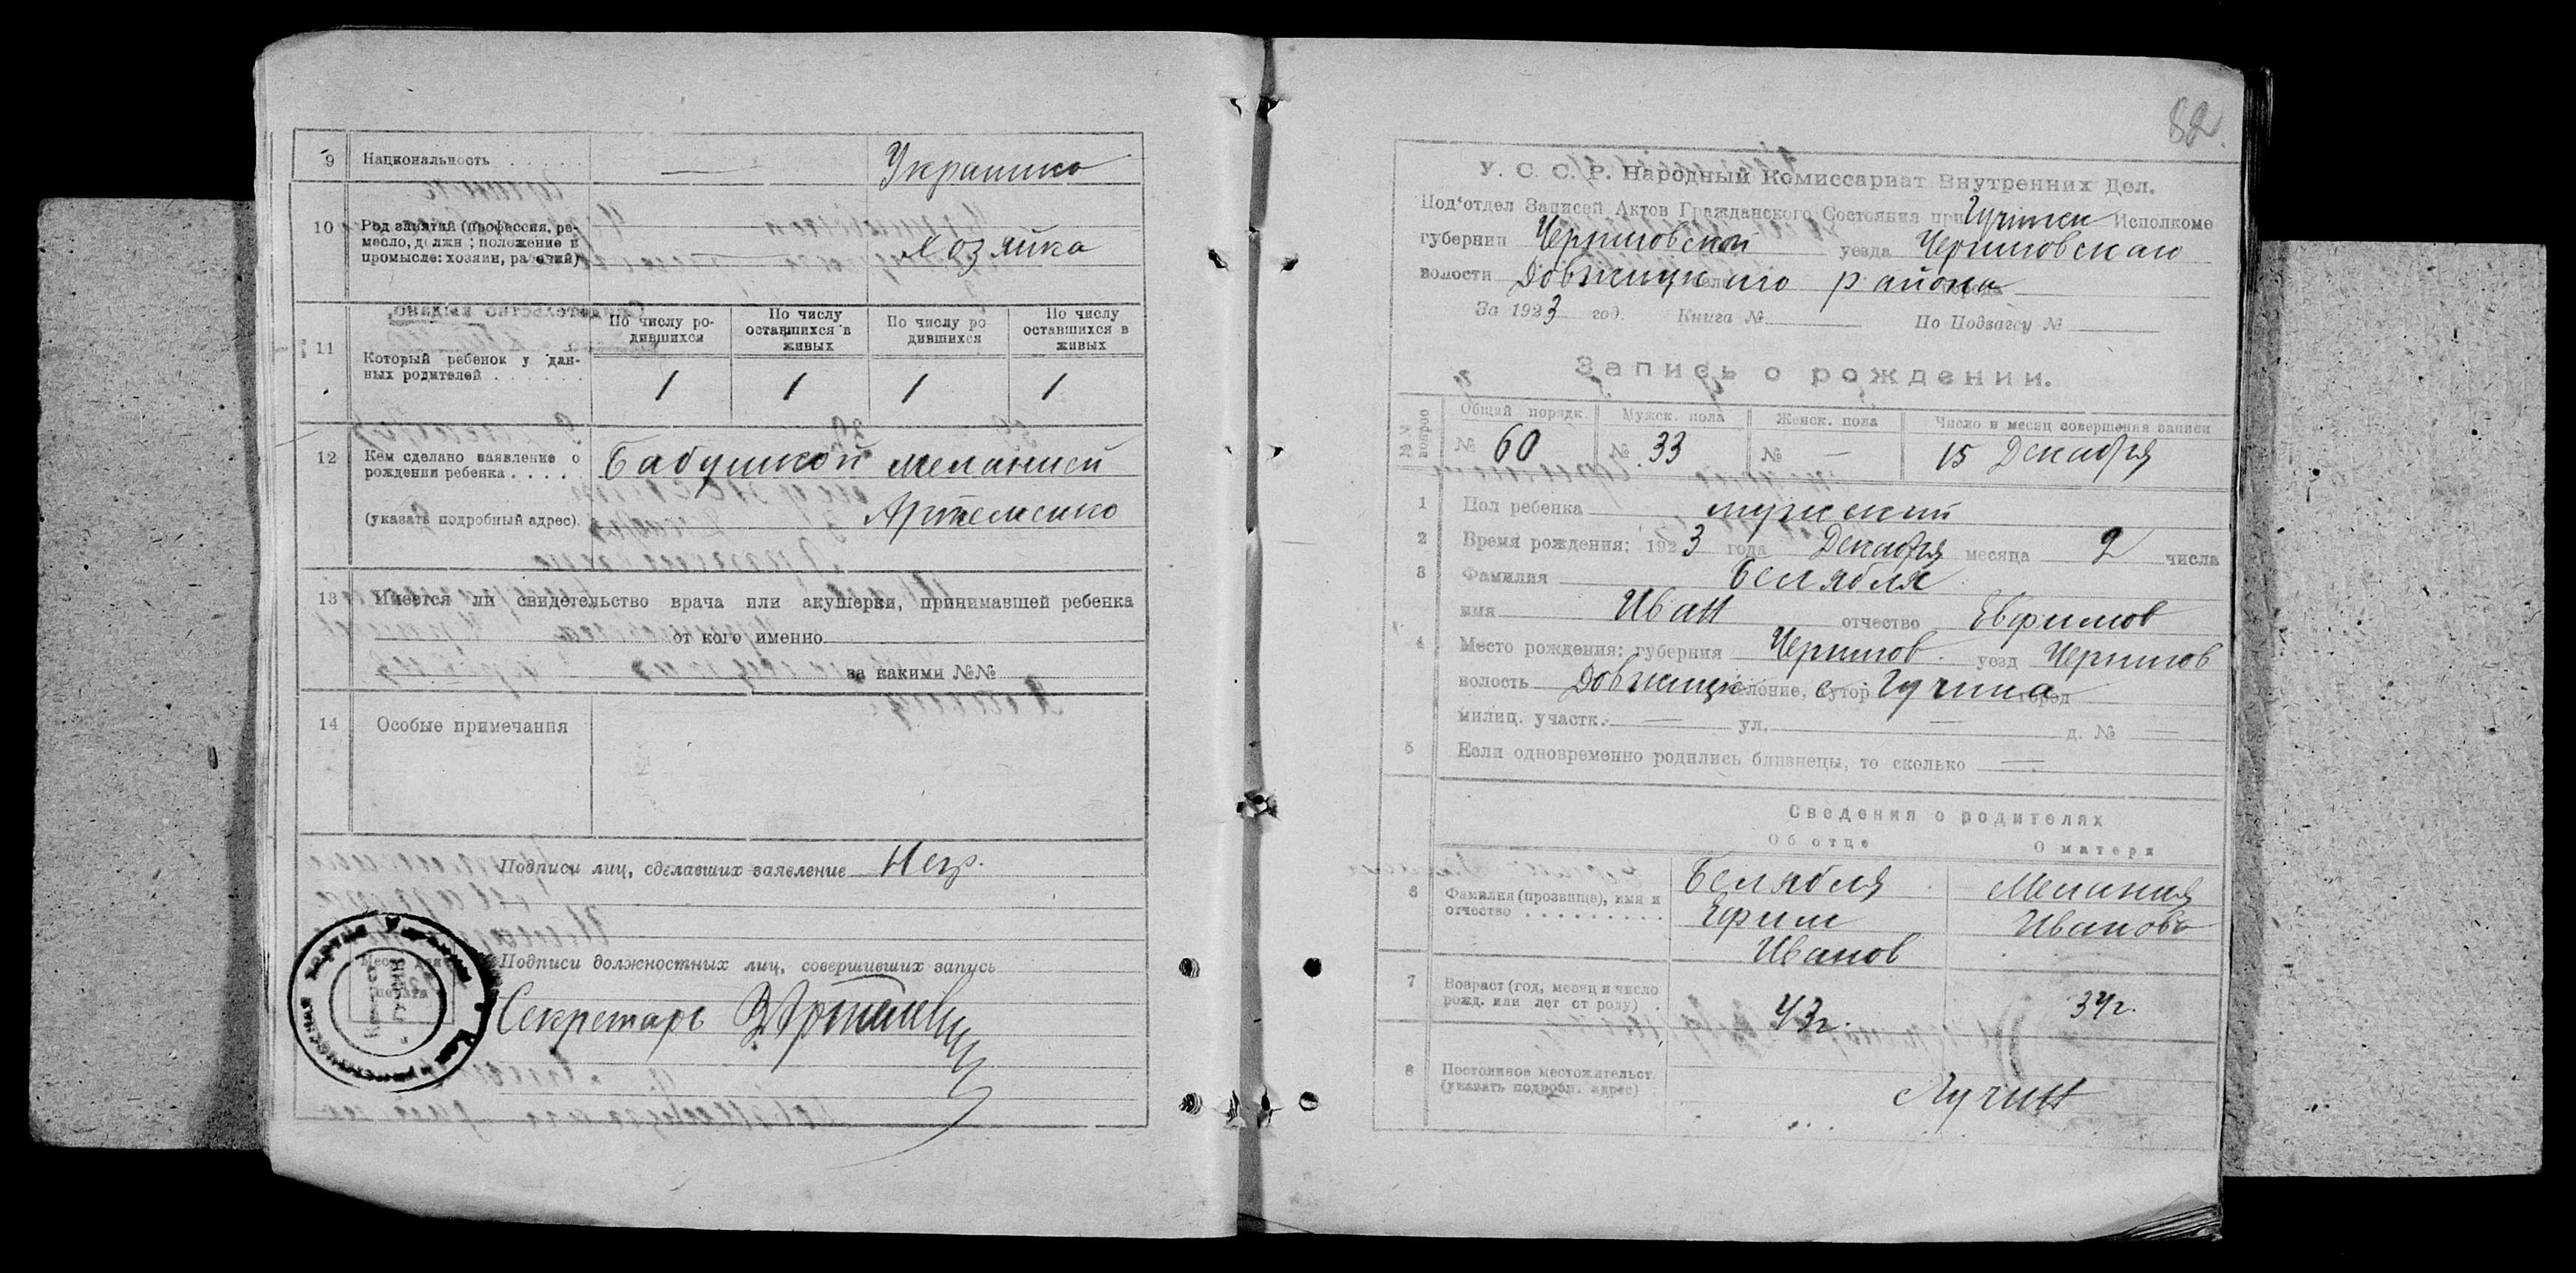 9 Национальность . . . . . — Украинка
10 Род занятий (профессия, ре-
месло, должн.; положение в
промысле: хозяин, рабочий) Хозяйка
По числу ро-
дившихся
По числу
оставшихся в
живых
По числу ро
дившихся
По числу
оставшихся в
живых
11 Который ребенок у дан-
ных родителей . . . . . . .
1 1 1 1
12 Кем сделано заявление о
рождении ребенка . . . .
Бабушкой Меланией
(указать подробный адрес). Артеменко
13 Имеется ли свидетельство врача или акушерки, принимавшей ребенка
от кого именно
за какими №№
14 Особые примечания
Подписи лиц, сделавших заявление Негр.
Место для
печати
Подписи должностных лиц, совершивших запись
Секретарь
82.
У. С. С. Р. Народный Комиссариат Внутренних Дел.
Под'отдел Записей Актов Гражданского Состояния при Исполкоме
губернии Черниговской уезда Черниговскаго
волости района
За 1923 год. Книга № По Подзагсу №
Запись о рождении.
№№ вопрос
Общий порядк. Мужск. пола Женск. пола Число и месяц совершения записи
№ 60 № 33 № — 15 Декабря
1 Пол ребенка мужский
2 Время рождения: 1923 года Декабря месяца 2 числа
3 Фамилия Белябля
имя Иван отчество Евфимов
4 Место рождения: губерния Чернигов. уезд Чернигов
волость Довжицк селение, хутор с. Гучина город
милиц. участк. — ул. — д. № —
5 Если одновременно родились близнецы, то сколько —
Сведения о родителях
Об отце О матери
6 Фамилия (прозвище), имя и
отчество . . . . . . . . .
Белябля
Ефим
Иванов
Мелания
Иванова
7 Возраст (год, месяц и число
рожд. или лет от роду) .
43г. 34г.
8 Постоянное местожительст.
(указать подробн. адрес) .
Гучин